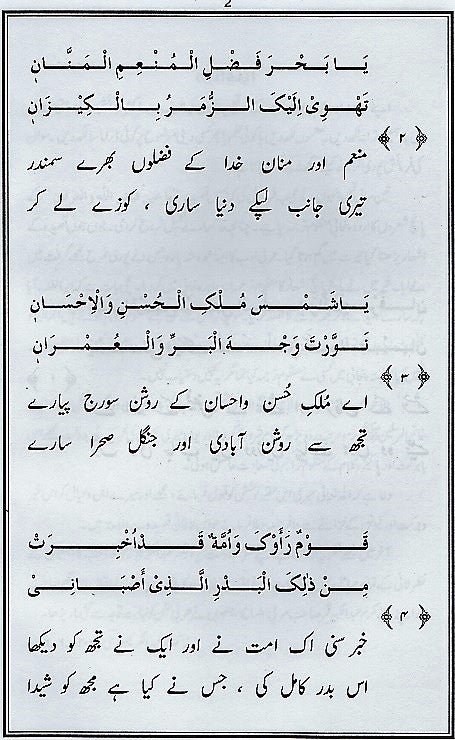 2
يَا بَحْرَ فَضْلِ الْمُنْعِمِ الْمَنَّانِ
تَهْوِىْ اِلَيْكَ الزُّمَرُ بِالْكِيْزَانِ
﴿۲﴾
منعم اور منان خدا کے فضلوں بھرے سمندر
تیری جانب لپکے دنیا ساری ، کوزے لے کر
يَا شَمْسَ مُلْكِ الْحُسْنِ وَالْاِحْسَانِ
نَوَّرْتَ وَجْهَ الْبَرِّ وَالْعُمْرَانِ
﴿۳﴾
اے مُلکِ حُسن واحسان کے روشن سورج پیارے
تجھ سے روشن آبادی اور جنگل صحرا سارے
قَوْمٌ رَأَوْكَ وَاُمَّةٌ قَدْ اُخْبِرَتْ
مِنْ ذٰلِكَ الْبَدْرِ الَّذِىْ أَصْبَانِىْ
﴿۴﴾
خبر سنی اک امت نے اور ایک نے تجھ کو دیکھا
اس بدر کامل کی ، جس نے کیا ہے مجھ کو شیدا